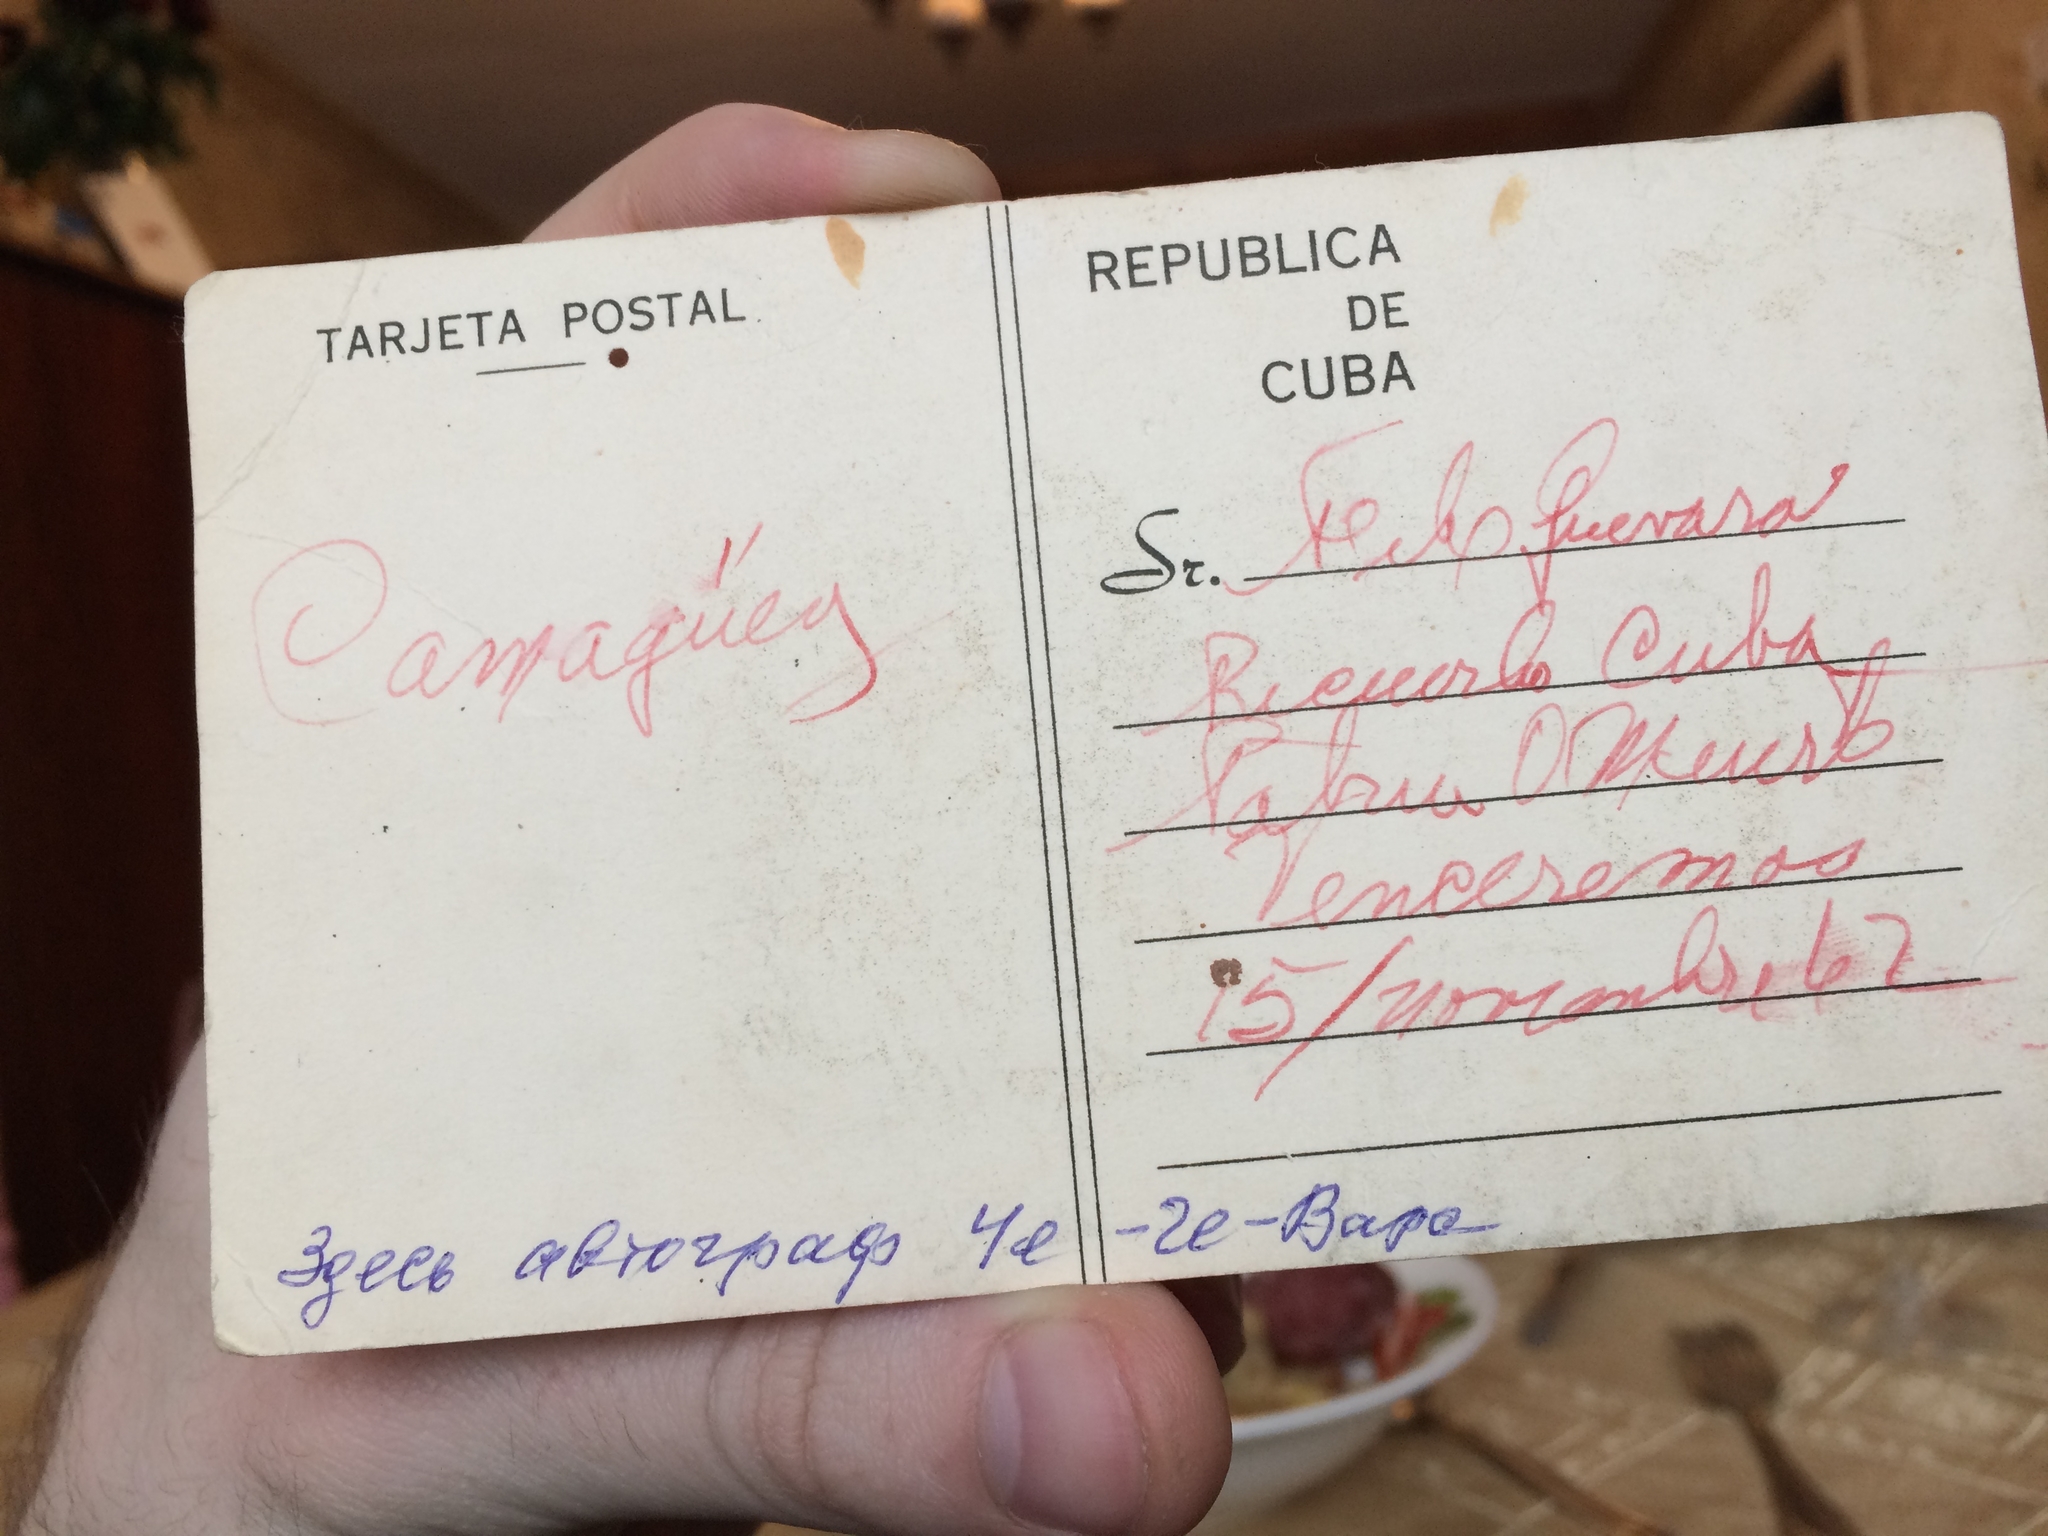 TARJETA POSTAL
Camagüey
REPUBLICA
DE
CUBA
Sr. Guevara
Recuerdo Cuba
Patria O Muerte
Venceremos
15/noviembre 62
Здесь автограф Че-Ге-Вара